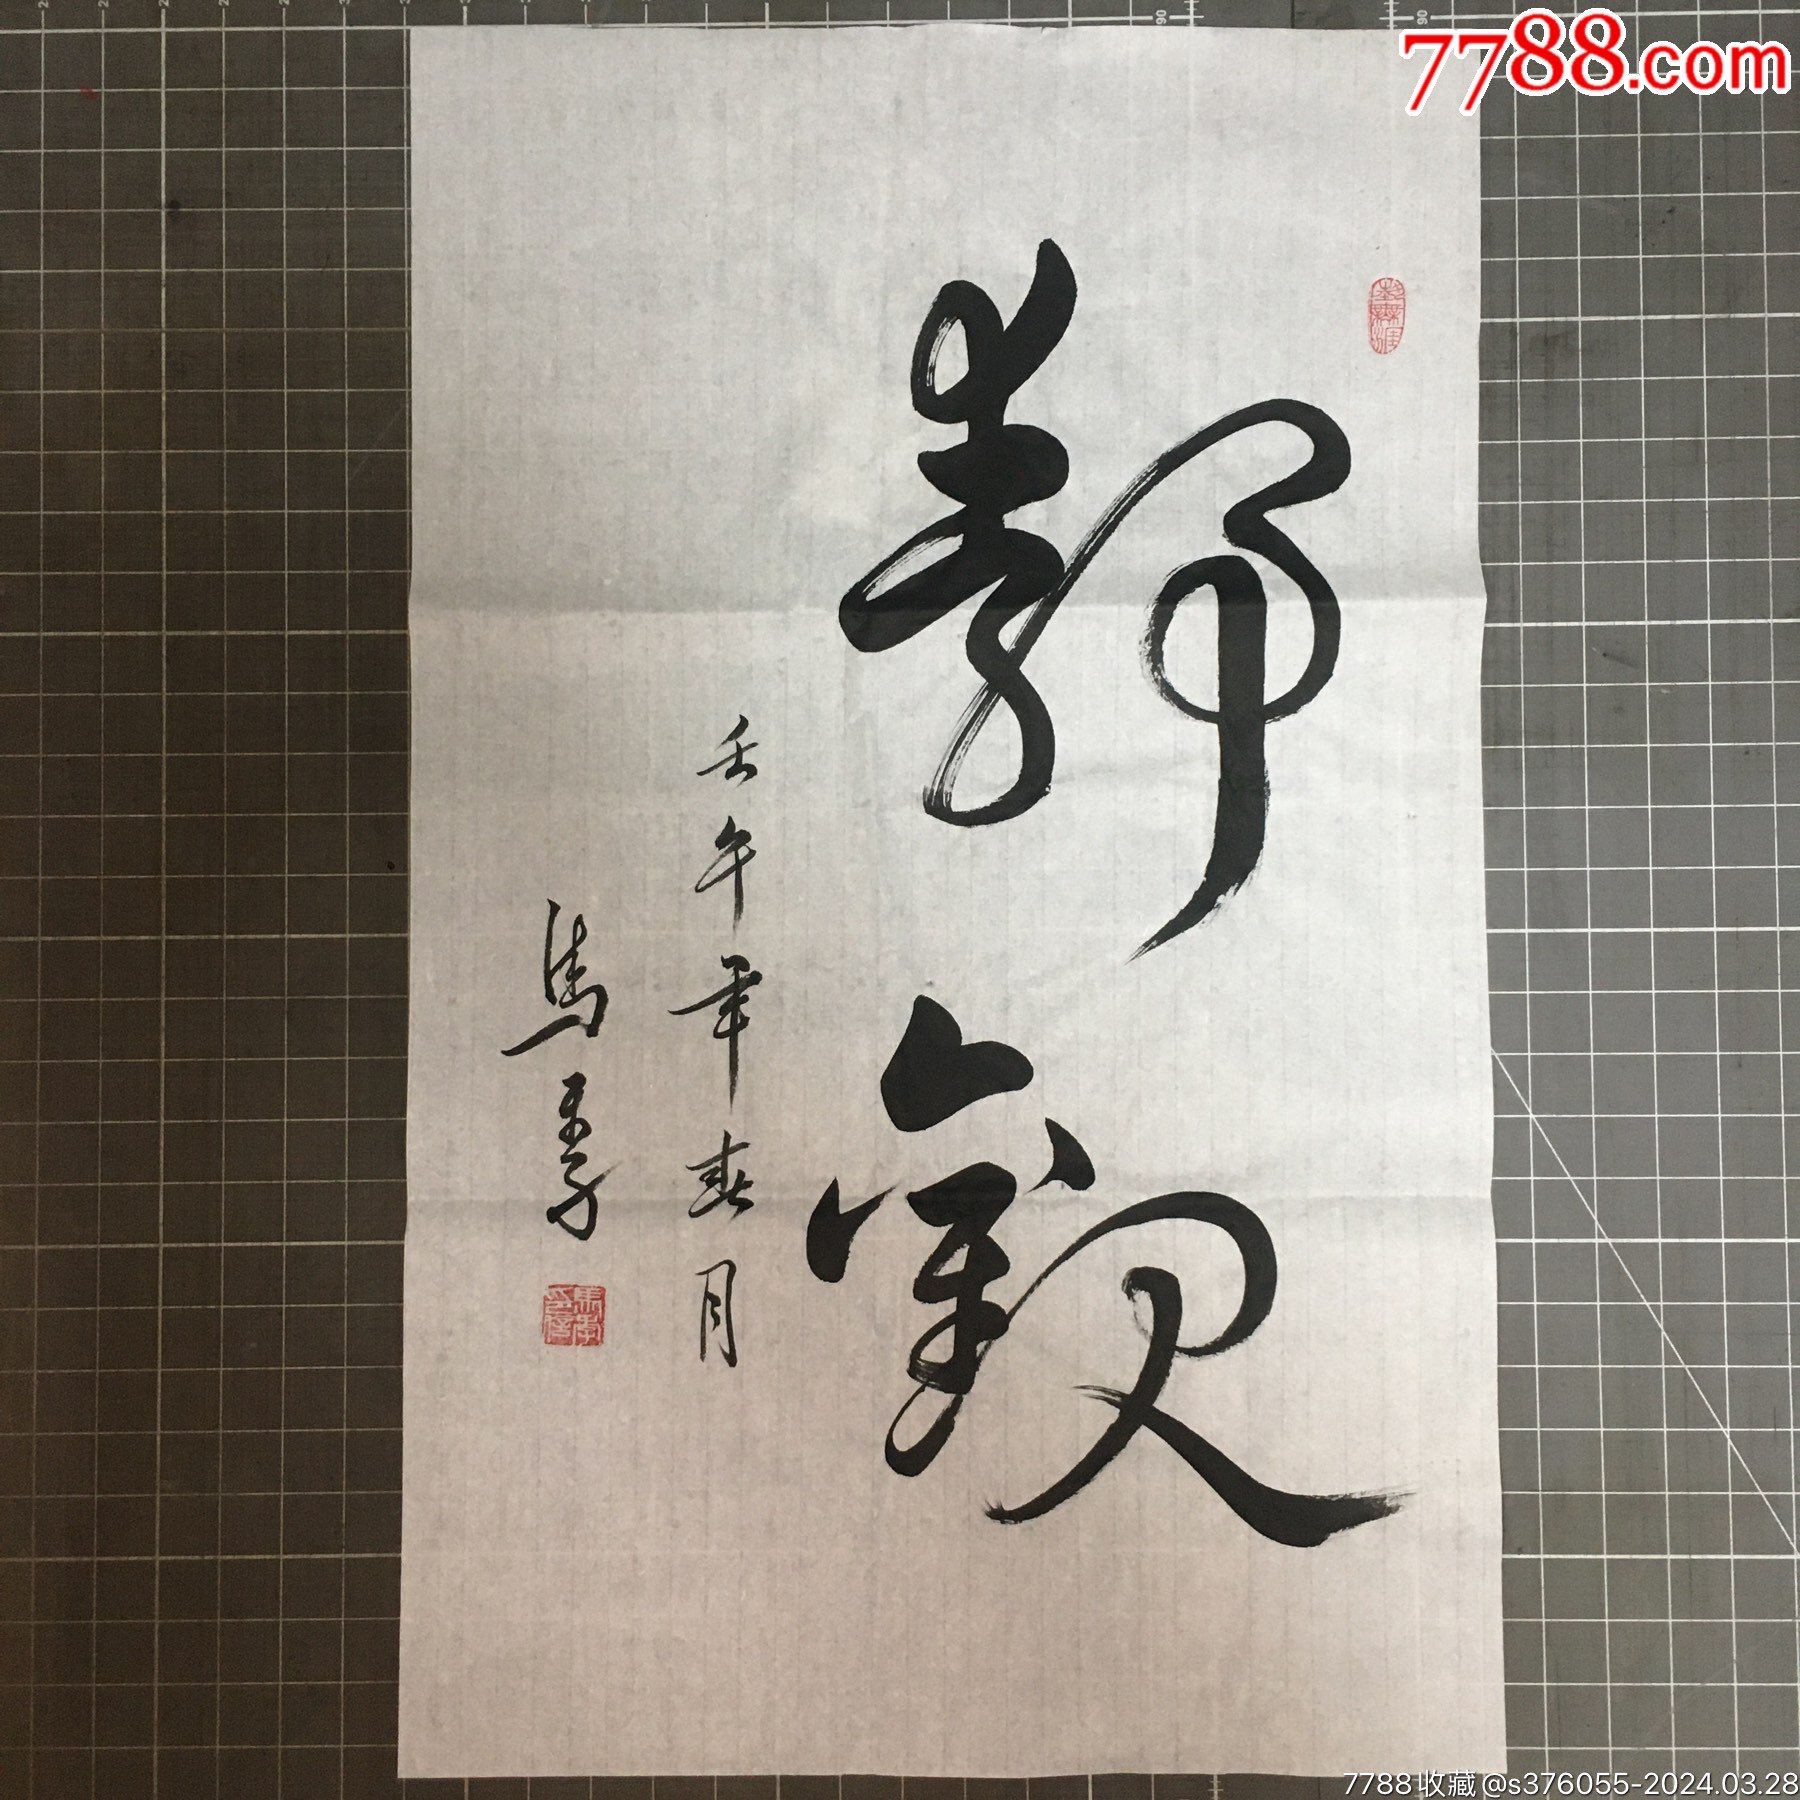 7788.com
静觀
壬午年春月
馬季
馬季印信
7788收藏@s376055-2024.03.28